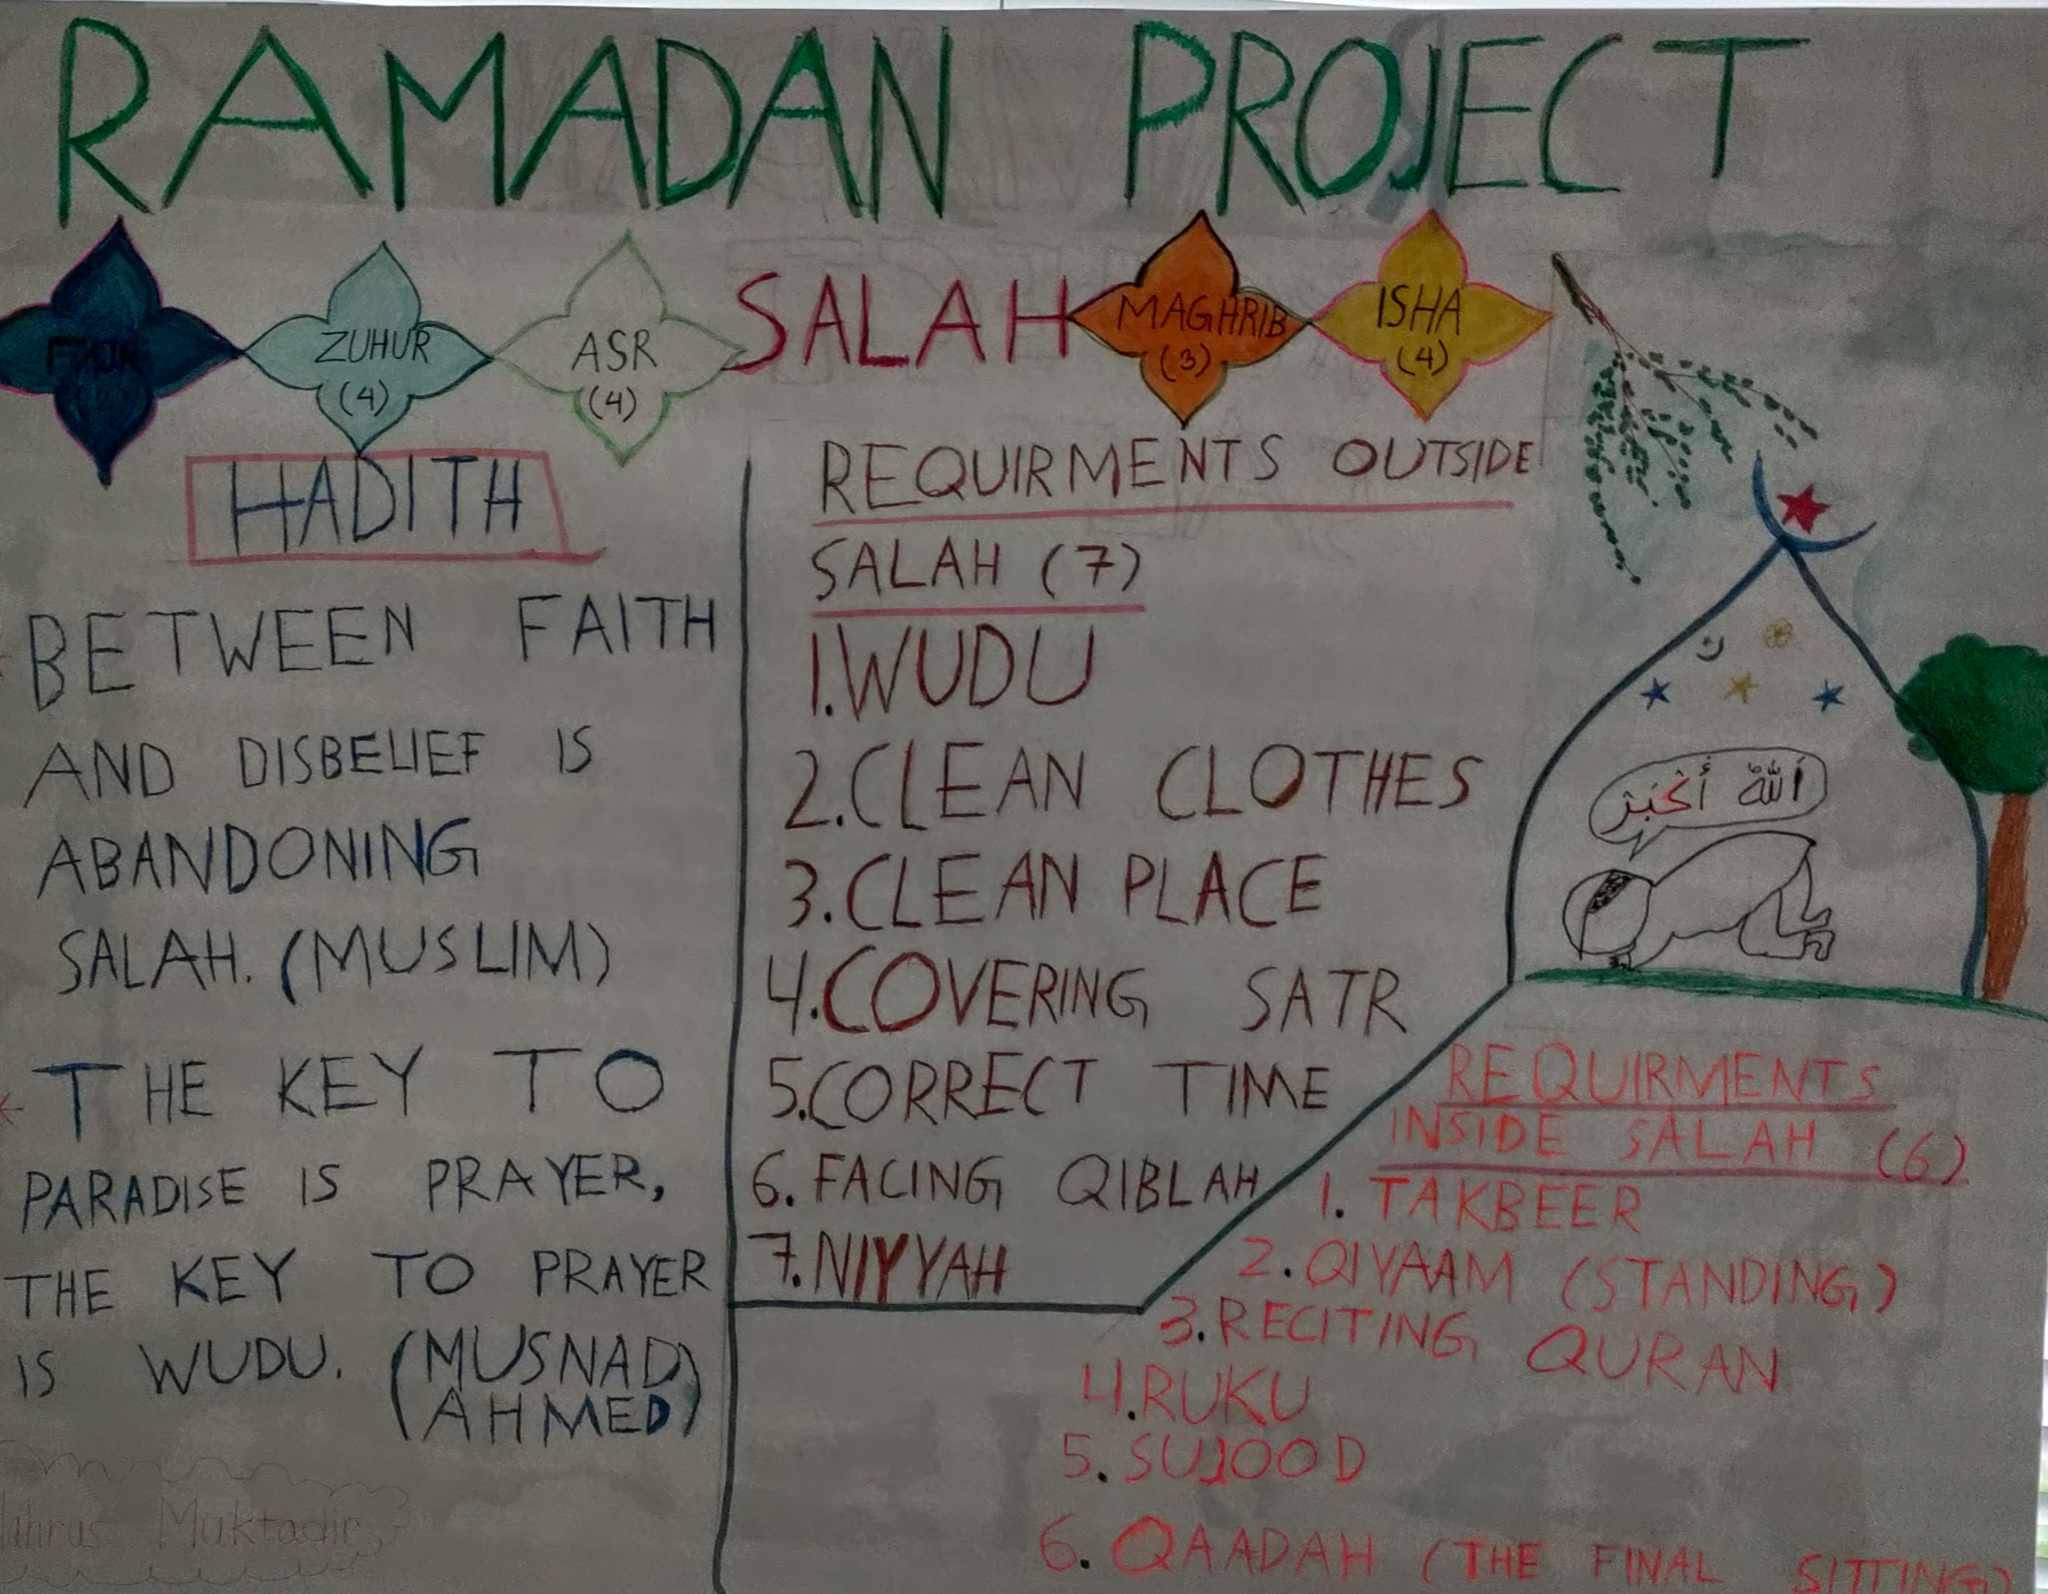 RAMADAN PROJECT
FAJR
ZUHUR
(4)
ASR
(4)
SALAH
MAGHRIB
(3)
ISHA
(4)
HADITH
BETWEEN FAITH
AND DISBELIEF IS
ABANDONING
SALAH. (MUSLIM)
THE KEY TO
PARADISE IS PRAYER,
THE KEY TO PRAYER
IS WUDU. (MUSNAD
AHMED)
Muktadir
REQUIRMENTS OUTSIDE
SALAH (7)
1.WUDU
2.CLEAN CLOTHES
3.CLEAN PLACE
4.COVERING SATR
5.CORRECT TIME
6. FACING QIBLAH
7.NIYYAH
اَللّٰهُ أَكْبَرْ
REQUIRMENTS
INSIDE SALAH (6)
1. TAKBEER
2. QIYAAM (STANDING)
3.RECITING QURAN
4.RUKU
5. SUJOOD
6. QAADAH (THE FINAL SITTING)